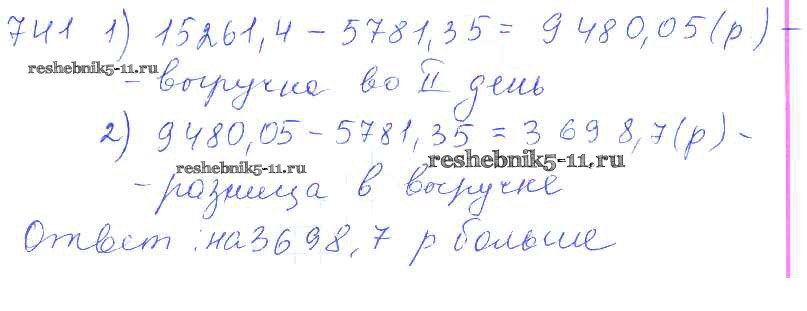 741 1) 15261,4 - 5781,35 = 9480,05 (р) -
reshebnik5-11.ru
- выручка во II день
2) 9480,05 - 5781,35 = 3698,7 (р) -
reshebnik5-11.ru reshebnik5-11.ru
- разница в выручке
Ответ: на 3698,7 р больше